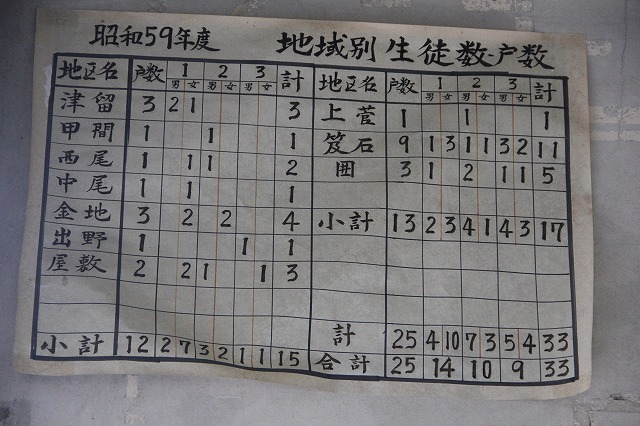 昭和59年度 地域別生徒数戸数
地区名 戸数 1 2 3 計
男 女 男 女 男 女
津留 3 2 1 3
甲間 1 1 1
西尾 1 1 1 2
中尾 1 1 1
金地 3 2 2 4
出野 1 1 1
屋敷 2 2 1 1 3
小計 12 2 7 3 2 1 1 15
地区名 戸数 1 2 3 計
男 女 男 女 男 女
上菅 1 1 1
笈石 9 1 3 1 1 3 2 11
囲 3 1 2 1 1 5
小計 13 2 3 4 1 4 3 17
計 25 4 10 7 3 5 4 33
合計 25 14 10 9 33